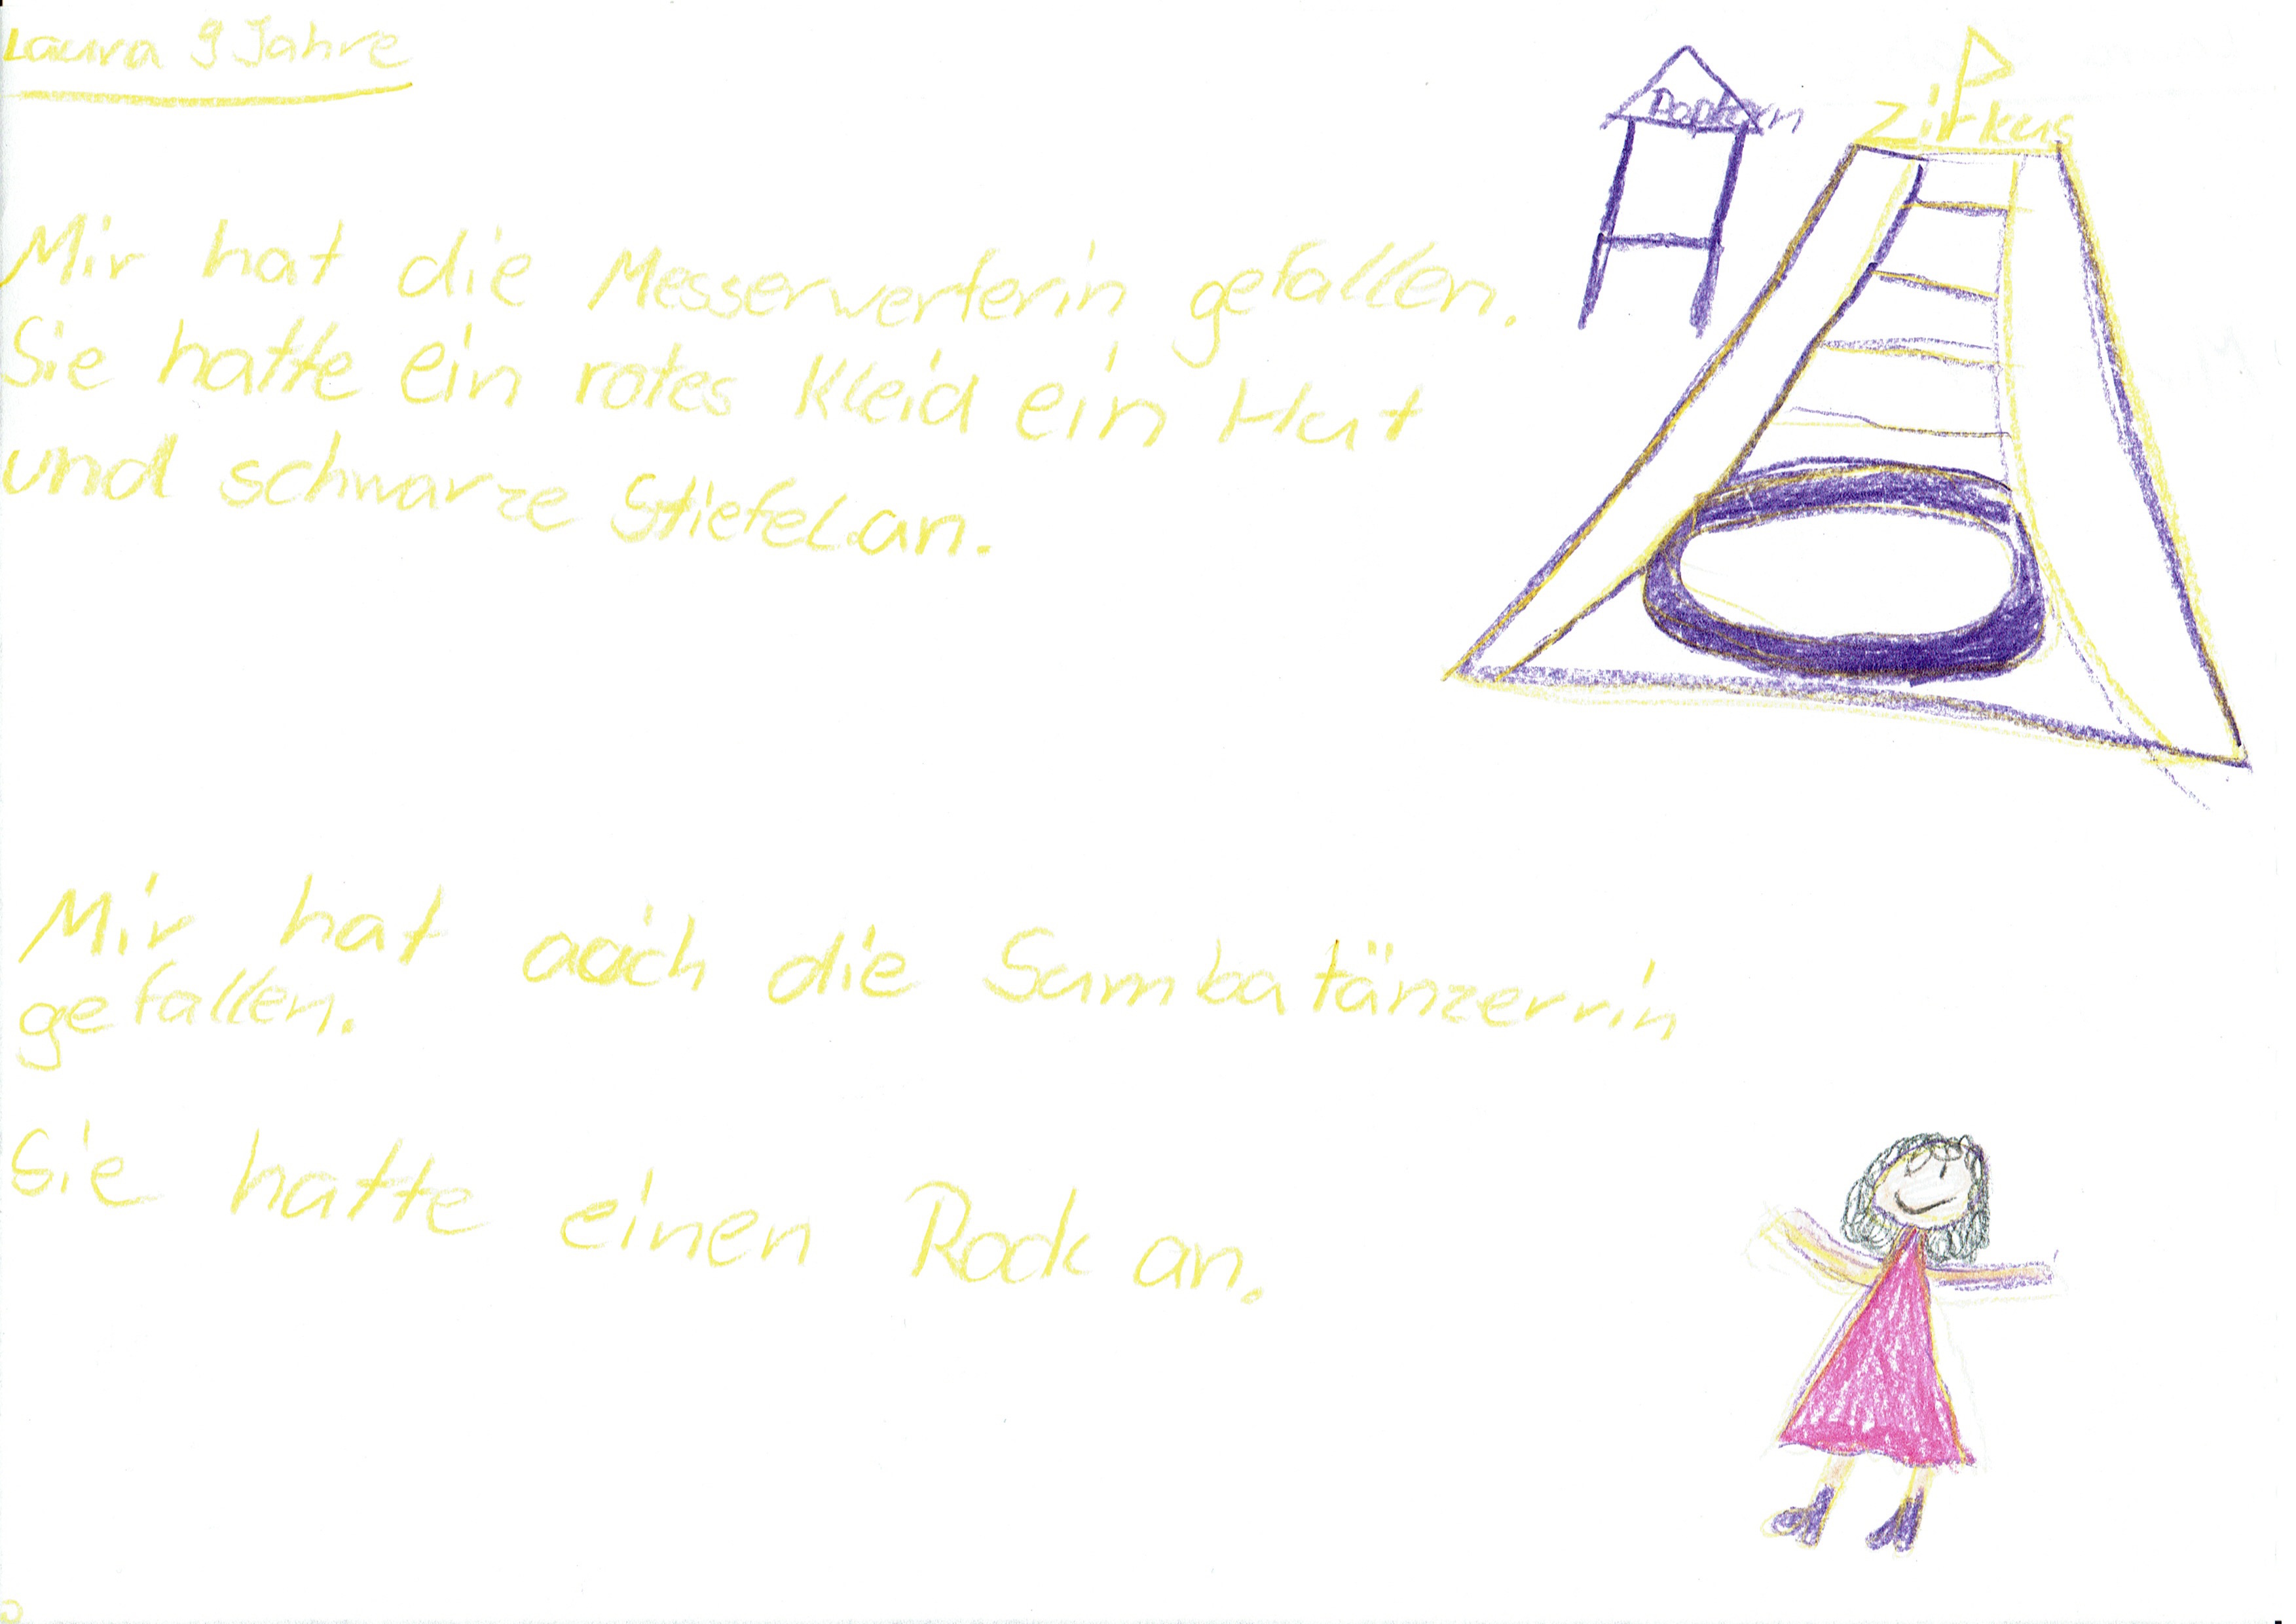 Laura 9 Jahre
Popkorn
Zirkus
Mir hat die Messerwerferin gefallen.
Sie hatte ein rotes Kleid ein Hut
und schwarze Stiefel an.
Mir hat auch die Sambatänzerrin
gefallen.
Sie hatte einen Rock an.